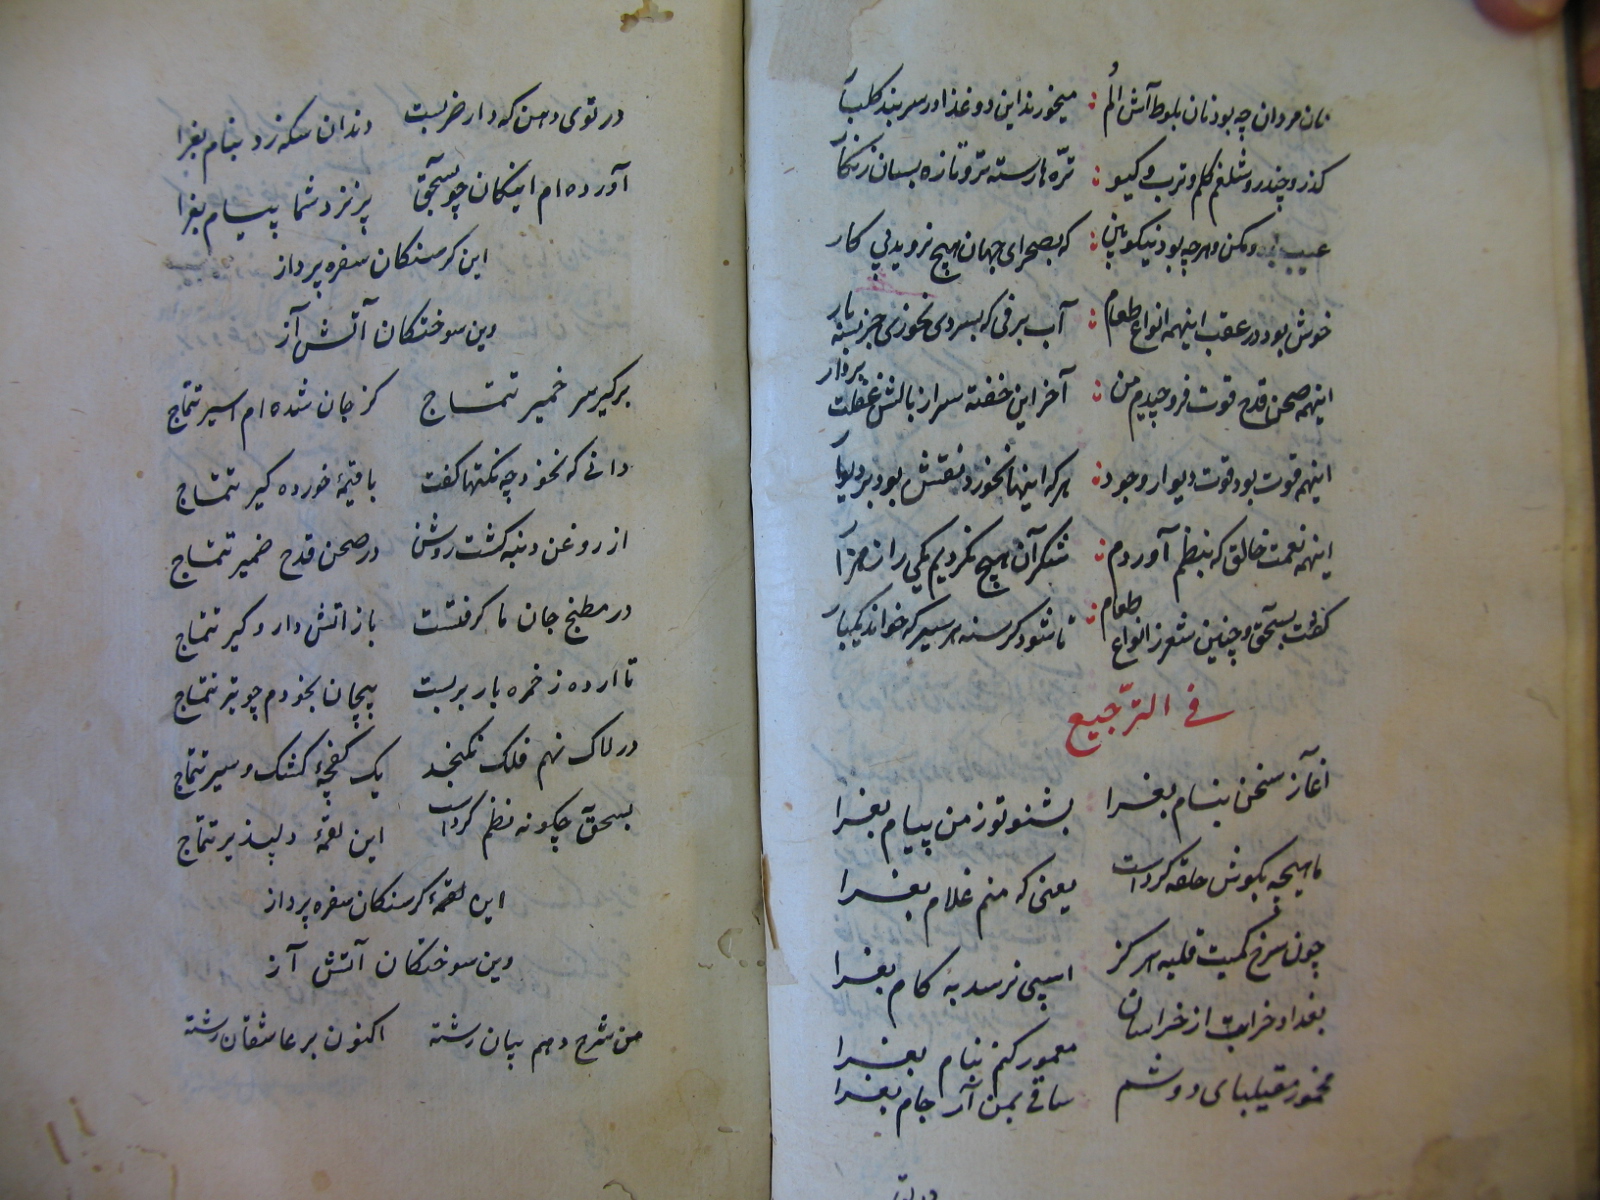 نان مردان چه بود نان بلوط آش الم : میخورند این دو غذا در سر بند کلبار
کذر و چندر و شلغم کلم و ترب و کیو : تره ها رسته تر و تازه بسان زنکار
عیب مکن و هرچه بود نیکو بین : که بصحرای جهان هیچ نروید بی کار
خوش بود در عقب اینهمه انواع طعام : آب برفی که بسردی نخوری جز بسه بار
اینهمه صحن قدح قوت فرو چیدم من : آخر این خفته سر از بالش غفلت بردار
اینهمه قوت بود قوت دیوار وجود : هر که اینها نخورد نقش بود بر دیوار
اینهمه نعمت خالق که بنظم آوردم : شکر آن هیچ نکردیم یکی را ز هزار
کفت بسحق و چنین شعر ز انواع طعام : تا شود کرسنه هر سیر که خواند یکبار
فی الترجیع
آغاز سخن بنام بغرا بشنو تو ز من پیام بغرا
ماهیچه بکوش حلقه کردست یعنی که منم غلام بغرا
چون سرخ کمیت قلیه هرکز اسپی نرسد به کام بغرا
بغداد خرابت از خراسان معمور کنم بنام بغرا
مخمور مقیلبای دوشم ساقی بمن آر جام بغرا
در توی
در توی دهن که دار ضربست دندان سکه زد بنام بغرا
آورده ام اینکان چو بسحق پز نزد شما پیام بغرا
این کرسنکان سفره پرداز
وین سوختکان آتش آز
برکیر سر خمیر تتماج کز جان شده ام اسیر تتماج
دانی که نخود چه نکتها کفت با قیمهٔ خورده کیر تتماج
از روغن دنبه کشت روشن در صحن قدح ضمیر تتماج
در مطبخ جان ما کرفتست باز آتش دار و کیر تتماج
تا ارده ز خمره بار بربست پیچان بخودم چو تیر تتماج
در لاک نهم فلک نکنجد یک کفچهٔ کشک و سیر تتماج
بسحق چکونه نظم کردست این لقمهٔ دلپذیر تتماج
این لقمهٔ کرسنکان سفره پرداز
وین سوختکان آتش آز
من شرح دهم بیان رشته اکنون بر عاشقان رشته